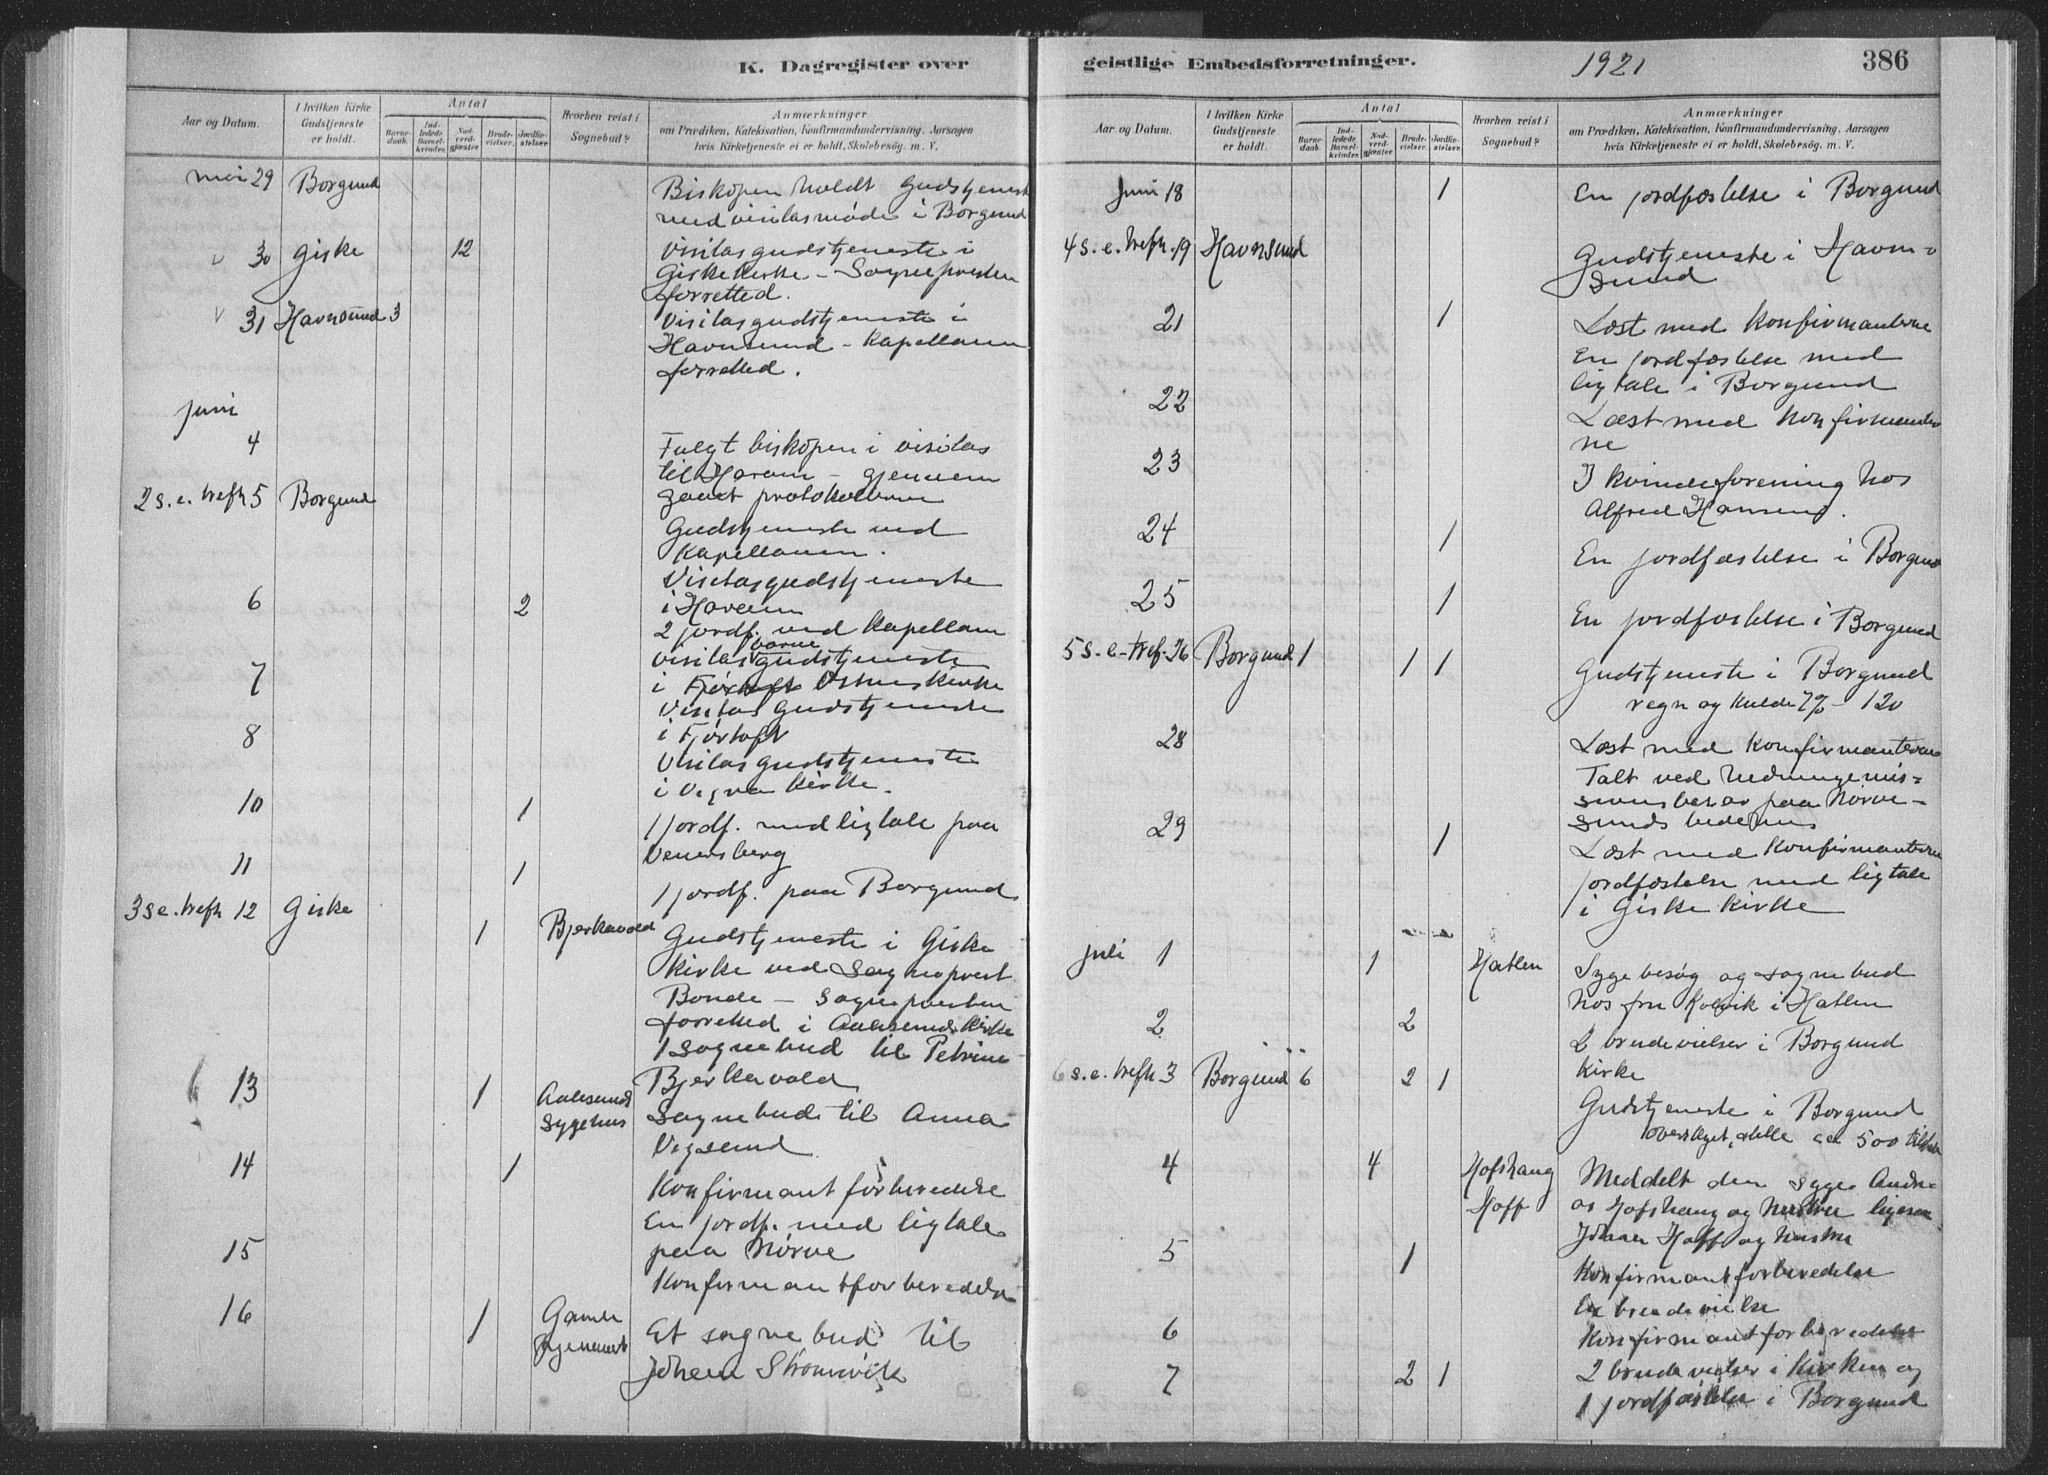 K. Dagregister over
Aar og Datum.
I hvilken Kirke Gudstjeneste er holdt.
Antal
Barnedaab.
Indledede Barselkvinder.
Nadverdgjæster
Brudevielser.
Jordfæstelser.
Hvorhen reist i Sognebud?
Anmærkninger
om Prædiken, Katekisation, Konfirmandundervisning. Aarsagen
hvis Kirketjeneste ei er holdt, Skolebesøg. m. V.
mai 29 Borgund Biskopen holdt Gudstjeneste
med visitasmøde i Borgund
30 Giske 12 Visitasgudstjeneste i
Giske kirke - Sognepresten
forretted.
31 Havnsund 3 Visitasgudstjeneste i
Havnsund - kapellanen
forretted.
juni
4 Fulgt biskopen i visitas
til Haram - gjennem
gaaet protokollerne
2 s. e. trefh 5 Borgund Gudstjeneste ved
kapellanen.
Visitasgudstjeneste
i Haram
6 2 2 jordf. ved kapellan
Visitasgudstjeneste
7 i Fjørtoft Østnes kirke
Visitas Gudstjeneste
8 i Fjørtoft
Visitasgudstjeneste
i Vigra kirke.
10 1 1 jordf. med ligtale paa
Venersberg
11 1 1 jordf. paa Borgund
3 s e. trefh 12 Giske 1 Bjerkavold Gudstjeneste i Giske
kirke ved Sogneprest
Bonde - Sognepresten
forretted i Aalesunds kirke
1 Sognebud til Petrine
Bjerkavold
13 1 Aalesunds Sygehus Sognebud til Anna
Vegsund
14 1 Konfirmant forberedelse
En jordf. med ligtale
paa Nørve
15 Konfirmantforberedelse
16 1 Gamle Et sognebud til
Johan Strømsvik
geistlige Embedsforretninger.
1921
386
Aar og Datum.
I hvilken Kirke Gudstjeneste er holdt.
Antal
Barnedaab.
Indledede Barselkvinder.
Nadverdgjæster
Brudevielser.
Jordfæstelser.
Hvorhen reist i Sognebud?
Anmærkninger
om Prædiken, Katekisation, Konfirmandundervisning. Aarsagen
hvis Kirketjeneste ei er holdt, Skolebesøg. m. V.
juni 18 1 En jordfæstelse i Borgund
4 s. e. trefh. 19 Havnsund Gudstjeneste i Havn-
sund
21 1 Læst med konfirmanterne
En jordfæstelse med
ligtale i Borgund
22 Læst med konfirmanter
ne
23 I kvindeforening hos
Alfred Hansens.
24 1 En jordfæstelse i Borgund
25 1 En jordfæstelse i Borgund
5 s. e. tref. 26 Borgund 1 1 1 Gudstjeneste i Borgund
regn og kulde 7% - 120
28 Læst med konfirmanterne
Talt ved hedningemis-
sionsbasar paa Nørve-
sunds bedehus
29 1 Læst med konfirmanterne
jordfæstelse med ligtale
i Giske kirke
juli 1 1 Hatlen Sygebesøg og sognebud
hos fru Kolvik i Hatlen
2 2 2 brudevielser i Borgund
kirke
6 s. e. trefh 3 Borgund 6 2 1 Gudstjeneste i Borgund
overskyet, stille ca 500
4 4 Hofshaug Hoff Meddelt den syge Andre-
as Hofshaug og hustru ligesaa
Johan Hoff og hustru
5 1 Konfirmantforberedelse
En brudevielse
6 Konfirmantforberedelse
7 2 1 2 brudevielser i kirken og
1 jordfæstelse i Borgund